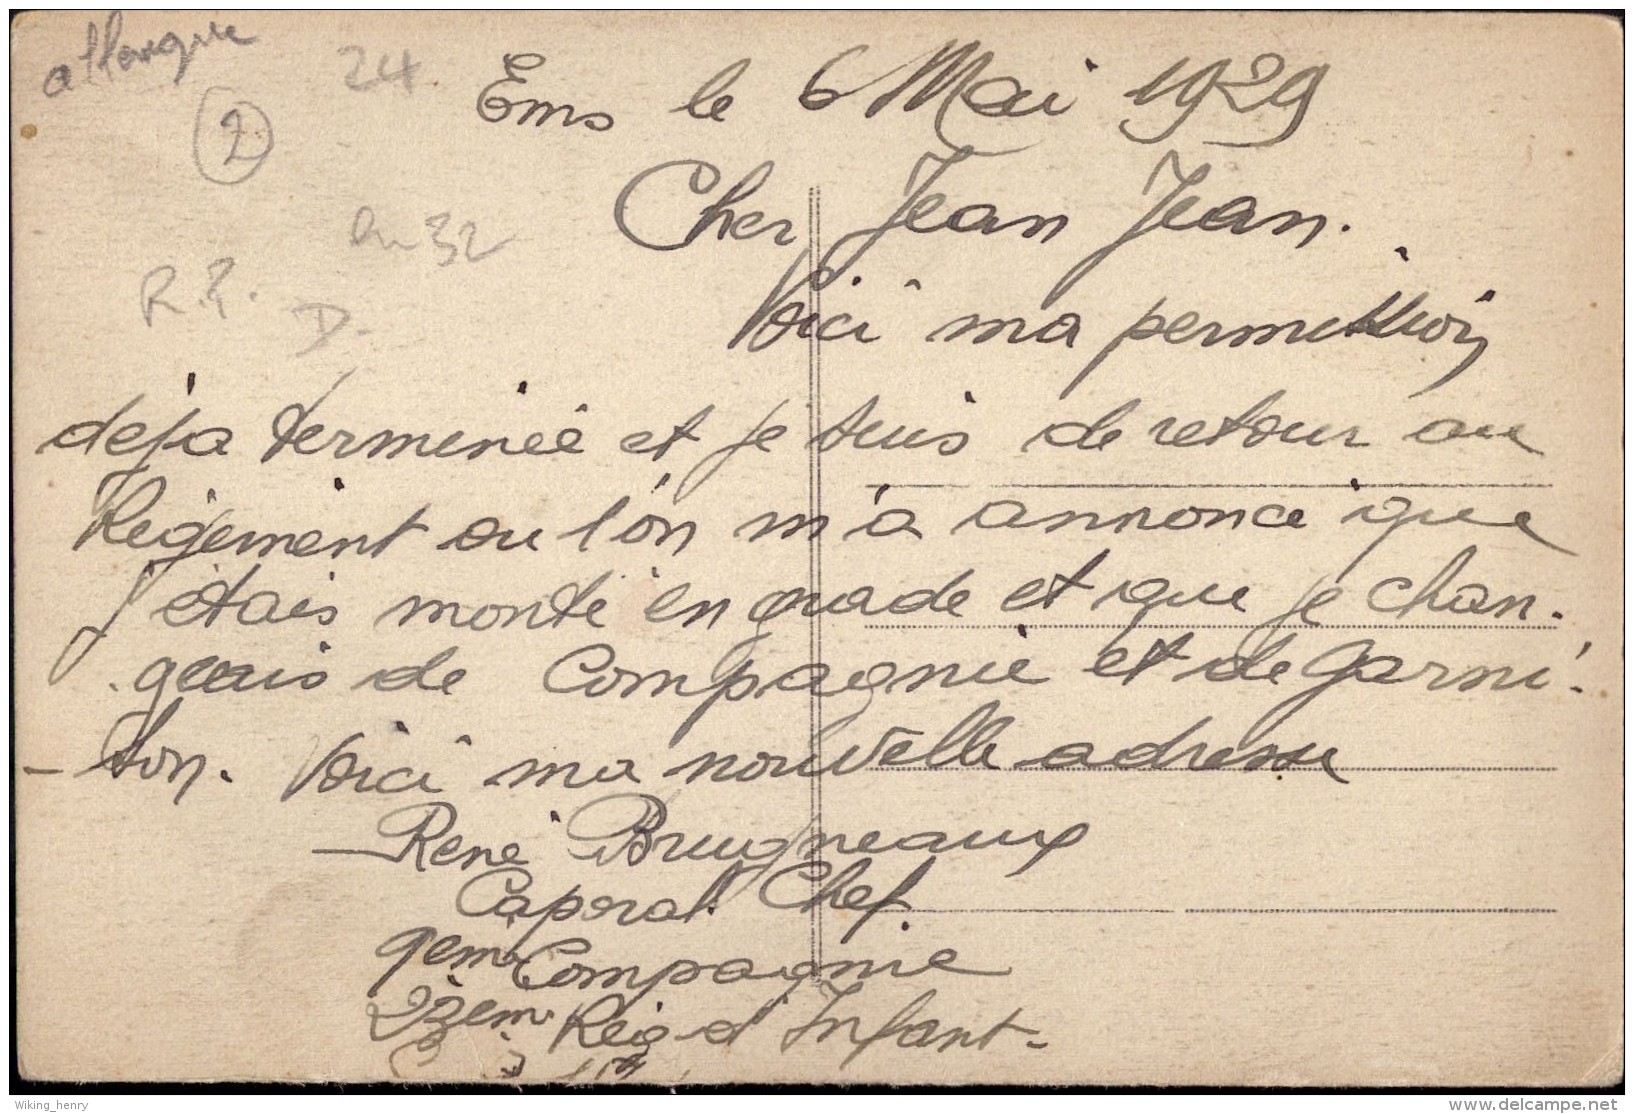 24
Ems le 6 Mai 1929
2
Cher Jean Jean.
en 32
R.P.
D.
Voici ma permission
déja terminée et je suis de retour au
Régement ou l'on m'a annoncé que
j'étais monté en grade et que je chan-
geais de Compagnie et de Garni-
- son. Voici ma nouvelle adresse
René Brugneaux
Caporal Chef
9em Compagnie
23em Reig d'Infant-
Wiking_henry
www.delcampe.net